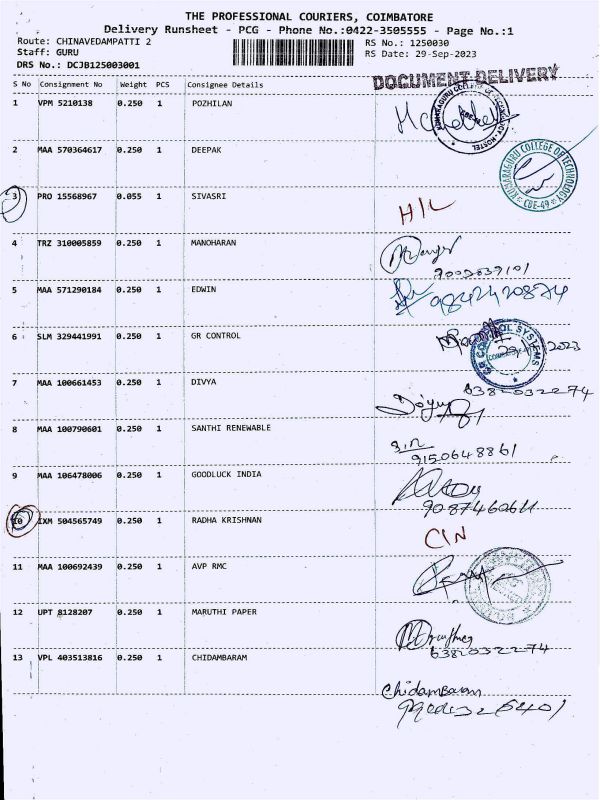 THE PROFESSIONAL COURIERS, COIMBATORE
Delivery Runsheet - PCG - Phone No.:0422-3505555 - Page No.:1
Route: CHINAVEDAMPATTI 2 RS No.: 1250030
Staff: GURU RS Date: 29-Sep-2023
DRS No.: DCJB125003001
DOCUMENT DELIVERY
S No Consignment No Weight PCS Consignee Details
1 VPM 5210138 0.250 1 POZHILAN
2 MAA 570364617 0.250 1 DEEPAK
KUMARAGURU COLLEGE OF TECHNOLOGY
CBE-49
3 PRO 15568967 0.055 1 SIVASRI
H/L
4 TRZ 310005859 0.250 1 MANOHARAN
5 MAA 571290184 0.250 1 EDWIN
9842420874
6 SLM 329441991 0.250 1 GR CONTROL
GR CONTROL SYSTEMS
7 MAA 100661453 0.250 1 DIVYA
6382032274
8 MAA 100790601 0.250 1 SANTHI RENEWABLE
9150648861
9 MAA 106478006 0.250 1 GOODLUCK INDIA
9087460611
10 IXM 504565749 0.250 1 RADHA KRISHNAN
C/N
11 MAA 100692439 0.250 1 AVP RMC
12 UPT 8128207 0.250 1 MARUTHI PAPER
6382032274
13 VPL 403513816 0.250 1 CHIDAMBARAM
Chidambaram